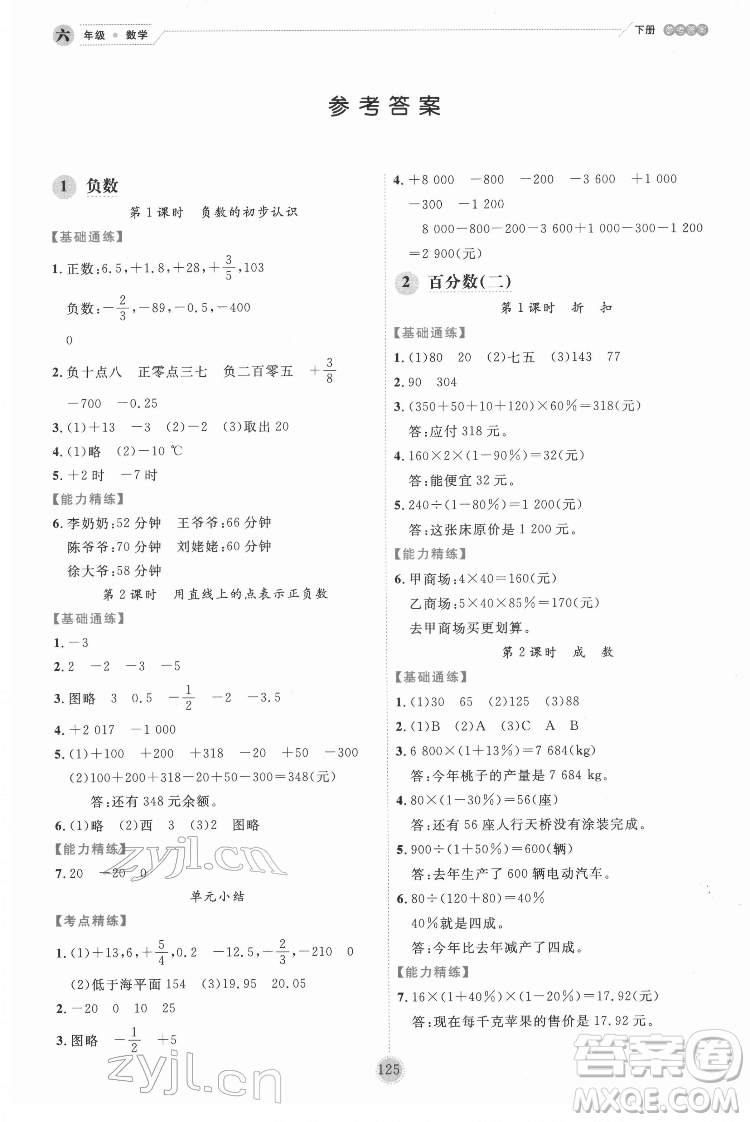 六 年级 · 数学
下册 参考答案
参考答案
1 负数
第1课时 负数的初步认识
【基础通练】
1. 正数:6.5,+1.8,+28,+3/5,103
负数:-2/3,-89,-0.5,-400
0
2. 负十点八 正零点三七 负二百零五 +3/8
-700 -0.25
3. (1)+13 -3 (2)-2 (3)取出20
4. (1)略 (2)-10 ℃
5. +2时 -7时
【能力精练】
6. 李奶奶:52分钟 王爷爷:66分钟
陈爷爷:70分钟 刘姥姥:60分钟
徐大爷:58分钟
第2课时 用直线上的点表示正负数
【基础通练】
1. -3
2. 2 -2 -3 -5
3. 图略 3 0.5 -1/2 -2 -3.5
4. +2 017 -1 000
5. (1)+100 +200 +318 -20 -250
(2)100+200+318-20-250=348(元)
答:还有348元余额。
6. (1)略 (2)西 3 (3)2 图略
【能力精练】
7. 20 -20 0
单元小结
【考点精练】
1. (1)+13,6,+5/4,0.2 -12.5,-2/3,-210 0
(2)低于海平面154 (3)19.96 20.05
2. -20 0 10 25
3. 图略 -1/2 +5
4. +8 000 -800 -200 -3 600 +1 000
-300 -1 200
8 000-800-200-3 600+1 000-300-1 200
=2 900(元)
2 百分数(二)
第1课时 折扣
【基础通练】
1. (1)80 20 (2)七五 (3)143 77
2. 90 304
3. (350+50+10+120)×60%=318(元)
答:应付318元。
4. 160×2×(1-90%)=32(元)
答:能便宜32元。
5. 240÷(1-80%)=1 200(元)
答:这张床原价是1 200元。
【能力精练】
6. 甲商场:4×40=160(元)
乙商场:5×40×85%=170(元)
去甲商场买更划算。
第2课时 成数
【基础通练】
1. (1)30 (2)125 (3)88
2. (1)B (2)A (3)C A B
3. 6 800×(1+13%)=7 684(kg)
答:今年桃子的产量是7 684 kg。
4. 80×(1-30%)=56(座)
答:还有56座人行天桥没有涂装完成。
5. 900÷(1+50%)=600(辆)
答:去年生产了600辆电动汽车。
6. 80÷(120+80)=40%
40%就是四成。
答:今年比去年减产了四成。
【能力精练】
7. 16×(1+40%)×(1-20%)=17.92(元)
答:现在每千克苹果的售价是17.92元。
125
zyjl.cn
zyjl.cn
答案圈
MXQE.COM